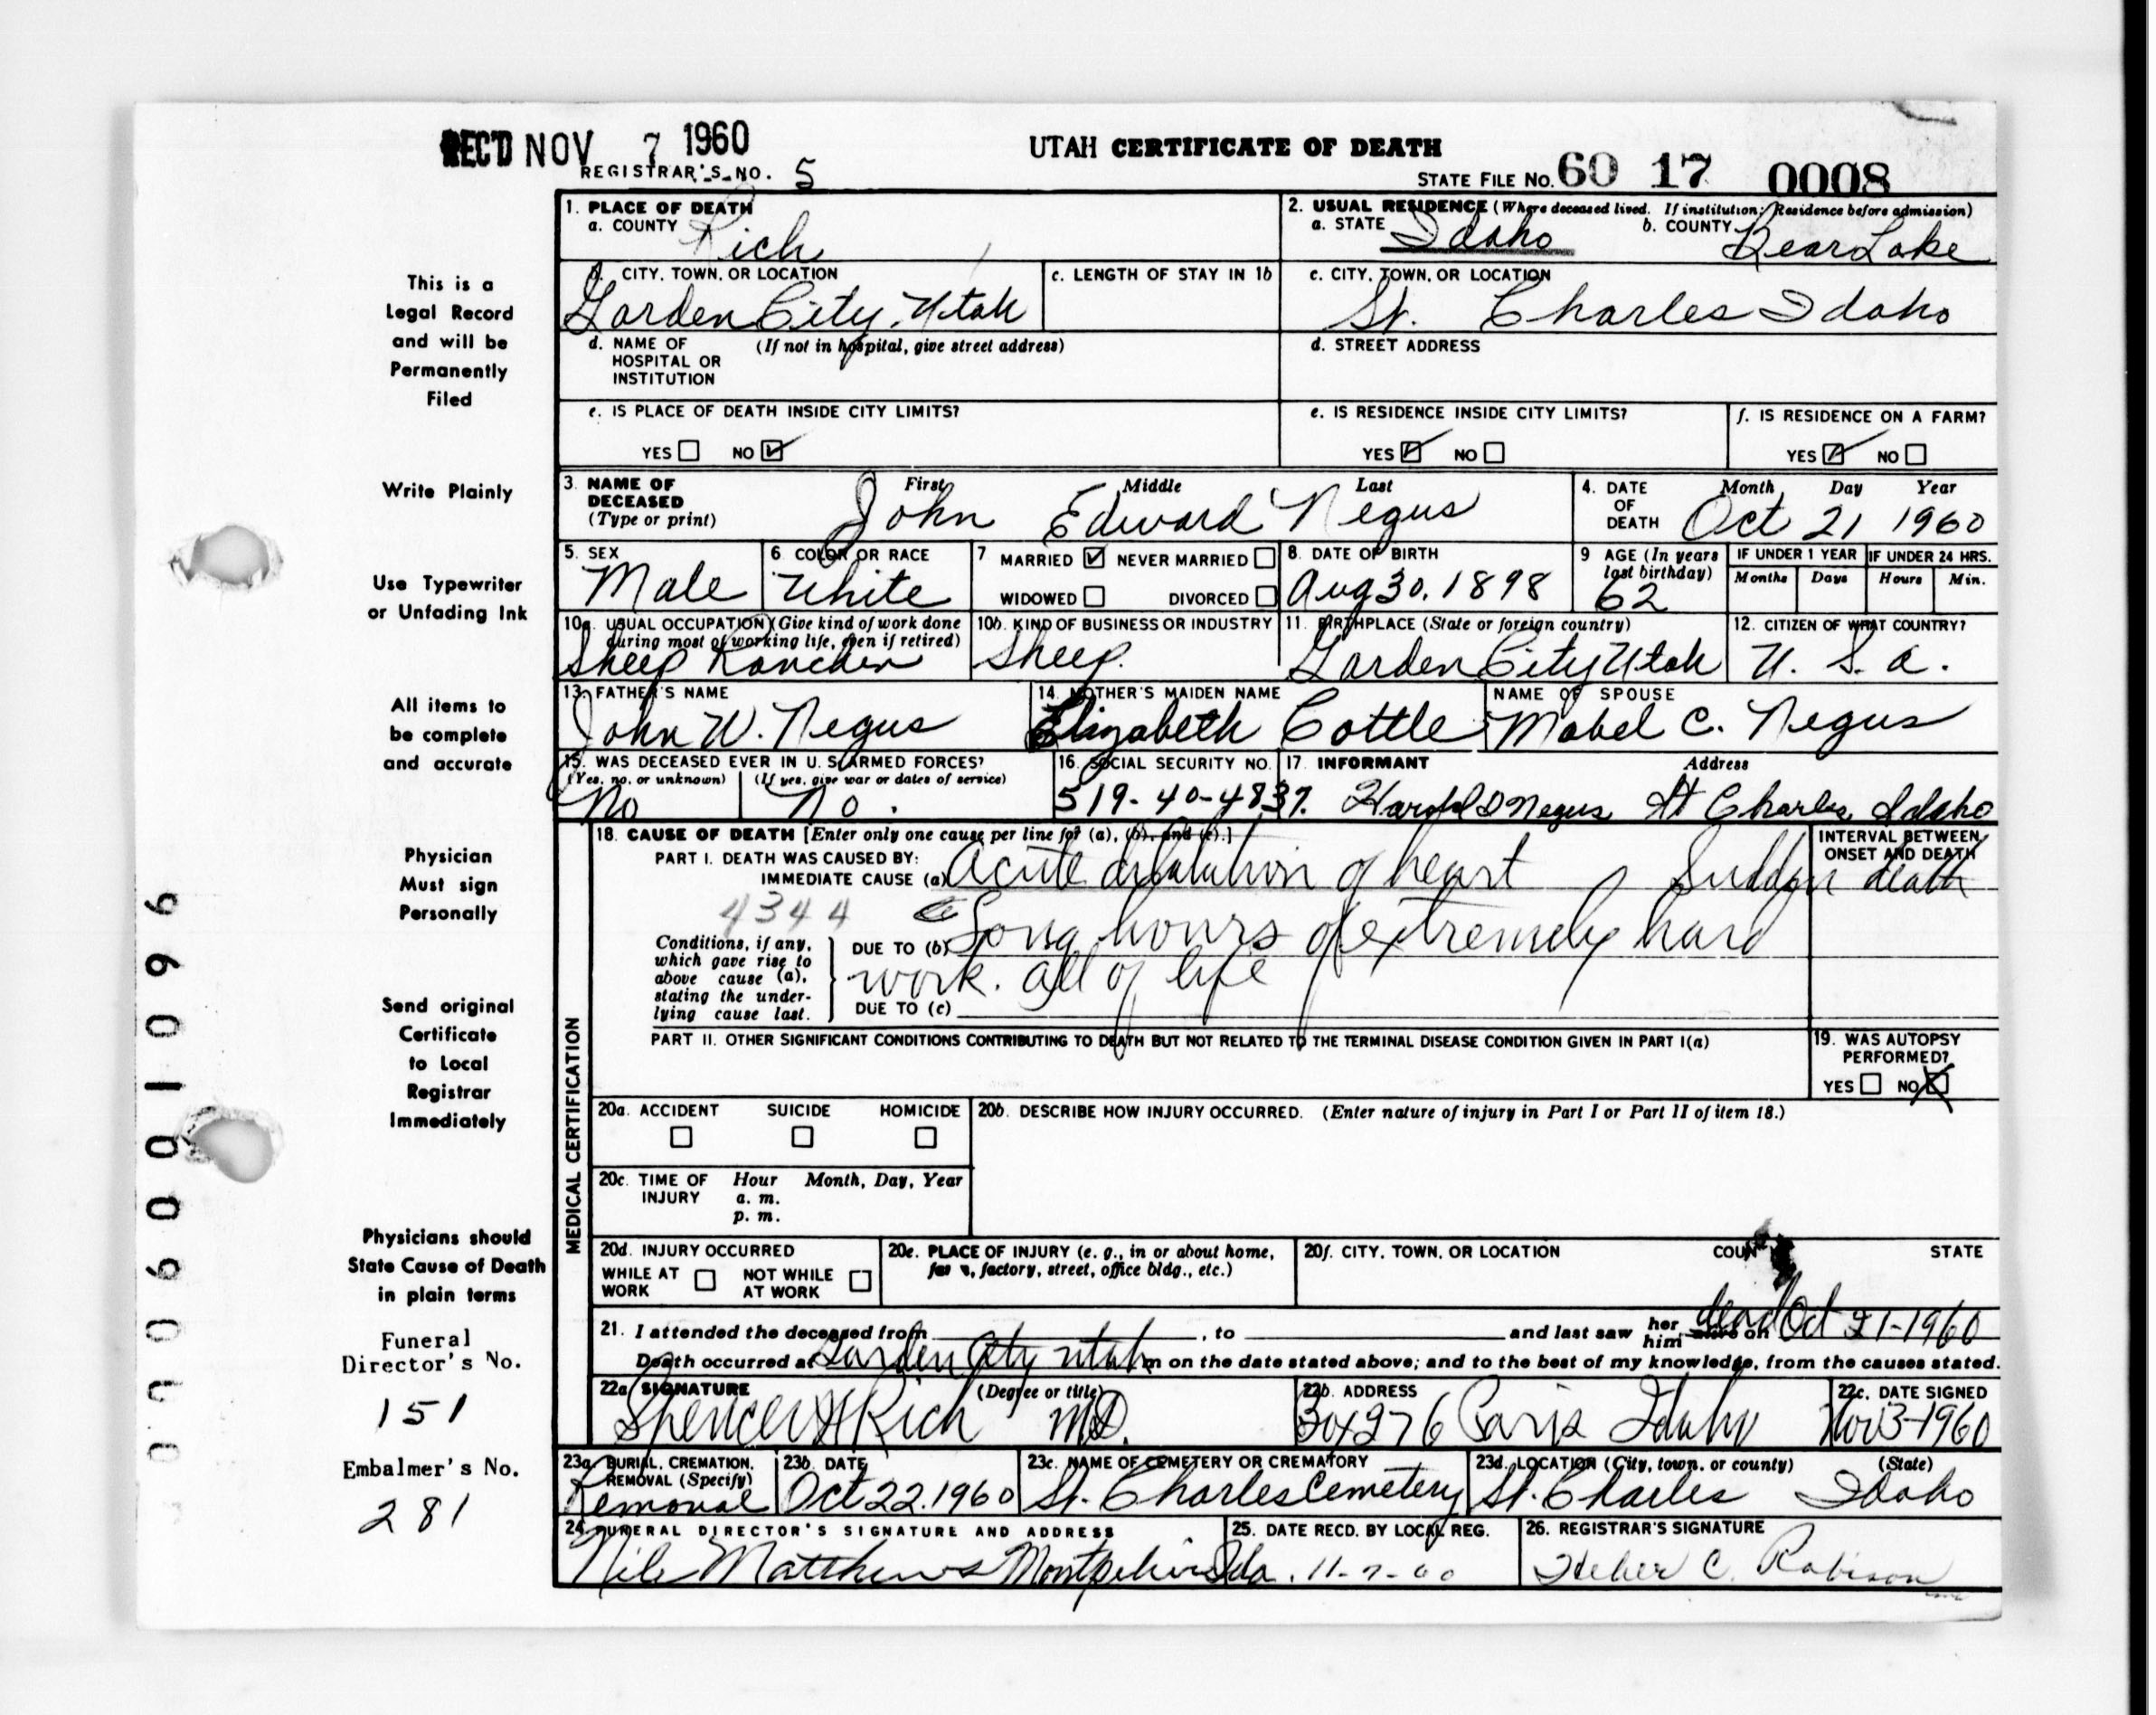 REC'D NOV 7 1960
REGISTRAR'S NO. 5
UTAH CERTIFICATE OF DEATH
STATE FILE NO. 60 17 0008
1. PLACE OF DEATH
a. COUNTY Rich
2. USUAL RESIDENCE (Where deceased lived. If institution: Residence before admission)
a. STATE Idaho b. COUNTY Bear Lake
b. CITY, TOWN, OR LOCATION
Garden City, Utah
c. LENGTH OF STAY IN 1b
c. CITY, TOWN, OR LOCATION
St. Charles Idaho
d. NAME OF HOSPITAL OR INSTITUTION (If not in hospital, give street address)
d. STREET ADDRESS
e. IS PLACE OF DEATH INSIDE CITY LIMITS?
YES NO
e. IS RESIDENCE INSIDE CITY LIMITS?
YES NO
f. IS RESIDENCE ON A FARM?
YES NO
3. NAME OF DECEASED (Type or print)
First Middle Last
John Edward Negus
4. DATE OF DEATH
Month Day Year
Oct 21 1960
5. SEX
Male
6 COLOR OR RACE
White
7 MARRIED NEVER MARRIED
WIDOWED DIVORCED
8. DATE OF BIRTH
Aug 30, 1898
9 AGE (In years last birthday)
62
IF UNDER 1 YEAR
Months Days
IF UNDER 24 HRS.
Hours Min.
10a. USUAL OCCUPATION (Give kind of work done during most of working life, even if retired)
Sheep Rancher
10b. KIND OF BUSINESS OR INDUSTRY
Sheep.
11. BIRTHPLACE (State or foreign country)
Garden City Utah
12. CITIZEN OF WHAT COUNTRY?
U. S. a.
13. FATHER'S NAME
John W. Negus
14. MOTHER'S MAIDEN NAME
Elizabeth Cottle
NAME OF SPOUSE
Mabel C. Negus
15. WAS DECEASED EVER IN U. S. ARMED FORCES?
(Yes, no, or unknown) (If yes, give war or dates of service)
No No.
16. SOCIAL SECURITY NO.
519-40-4837.
17. INFORMANT Address
Harold Negus St Charles, Idaho
MEDICAL CERTIFICATION
18. CAUSE OF DEATH [Enter only one cause per line for (a), (b), and (c).]
INTERVAL BETWEEN ONSET AND DEATH
PART I. DEATH WAS CAUSED BY:
IMMEDIATE CAUSE (a) Acute dilatation of heart Sudden death
4344
Conditions, if any, which gave rise to above cause (a), stating the underlying cause last.
DUE TO (b) Long hours of extremely hard
work. all of life
DUE TO (c)
PART II. OTHER SIGNIFICANT CONDITIONS CONTRIBUTING TO DEATH BUT NOT RELATED TO THE TERMINAL DISEASE CONDITION GIVEN IN PART I(a)
19. WAS AUTOPSY PERFORMED?
YES NO
20a. ACCIDENT SUICIDE HOMICIDE
20b. DESCRIBE HOW INJURY OCCURRED. (Enter nature of injury in Part I or Part II of item 18.)
20c. TIME OF INJURY Hour Month, Day, Year
a. m.
p. m.
20d. INJURY OCCURRED
WHILE AT WORK NOT WHILE AT WORK
20e. PLACE OF INJURY (e. g., in or about home, farm, factory, street, office bldg., etc.)
20f. CITY, TOWN, OR LOCATION COUNTY STATE
21. I attended the deceased from , to and last saw her him alive on dead Oct 21-1960
Death occurred at Garden City Utah m on the date stated above; and to the best of my knowledge, from the causes stated.
22a SIGNATURE (Degree or title)
Spencer H Rich MD.
22b. ADDRESS
Box 276 Paris Idaho
22c. DATE SIGNED
Nov 3-1960
23a BURIAL, CREMATION, REMOVAL (Specify)
Removal
23b DATE
Oct 22. 1960
23c. NAME OF CEMETERY OR CREMATORY
St. Charles Cemetery
23d. LOCATION (City, town, or county) (State)
St. Charles Idaho
24. FUNERAL DIRECTOR'S SIGNATURE AND ADDRESS
Nile Matthews Montpelier Ida.
25. DATE RECD. BY LOCAL REG.
11-7-60
26. REGISTRAR'S SIGNATURE
Heber C. Robison
This is a
Legal Record
and will be
Permanently
Filed
Write Plainly
Use Typewriter
or Unfading Ink
All items to
be complete
and accurate
Physician
Must sign
Personally
Send original
Certificate
to Local
Registrar
Immediately
Physicians should
State Cause of Death
in plain terms
Funeral
Director's No.
151
Embalmer's No.
281